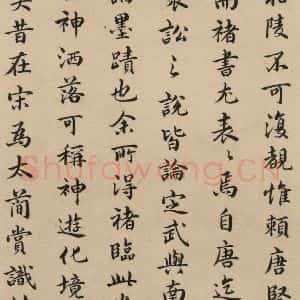 陵不可復覩惟賴唐
而褚書尤表〻焉自唐迄
聚訟之說皆論定武與南
墨蹟也余所得褚臨此
神洒落可稱神遊化境
昔在宋為太簡賞識
Shufawang.CN